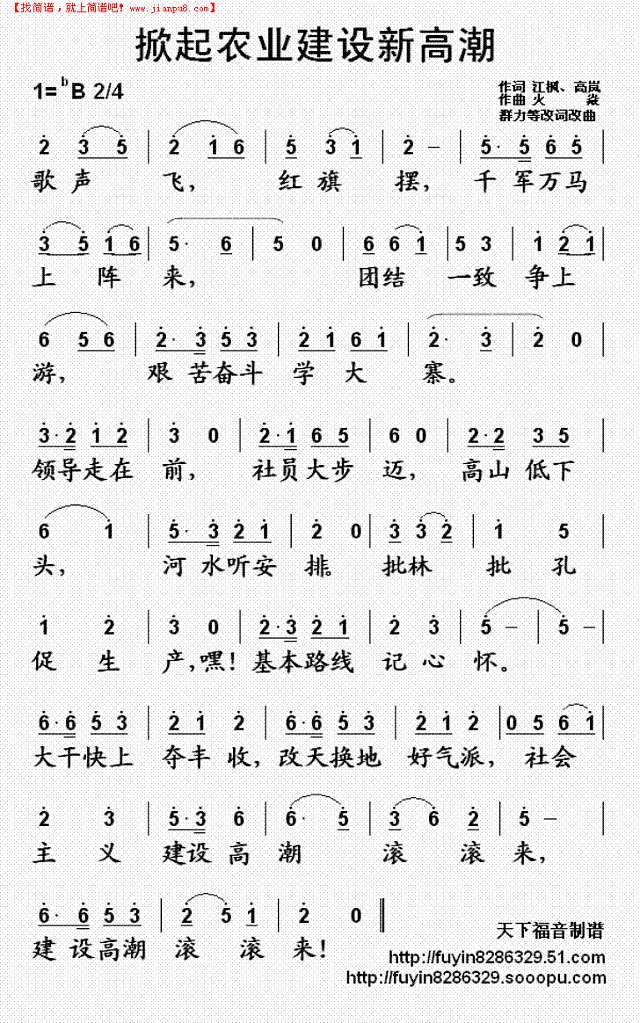 【找简谱，就上简谱吧! www.jianpu8.com】
掀起农业建设新高潮
1=ᵇB 2/4
作词 江枫、高岚
作曲 火 焱
群力等改词改曲
2 3 5 | 2 1 6 | 5 3 1 | 2 – | 5· 5 6 5
歌声 飞， 红旗 摆， 千 军万马
3 5 1 6 | 5· 6 | 5 0 | 6 6 1 | 5 3 | 1 2 1
上 阵 来， 团结 一致 争上
6 5 6 | 2· 3 5 3 | 2 1 6 1 | 2· 3 | 2 0
游， 艰 苦奋斗 学 大 寨。
3·2 1 2 | 3 0 | 2·1 6 5 | 6 0 | 2·2 3 5
领导走在 前， 社员大步 迈， 高山 低下
6 1 | 5· 3 2 1 | 2 0 | 3 3 2 | 1 5
头， 河 水听安 排。 批林 批 孔
1 2 | 3 0 | 2·3 2 1 | 2 3 | 5 – | 5 –
促 生 产，嘿！基本路线 记 心 怀。
6·6 5 3 | 2 1 2 | 6·6 5 3 | 2 1 2 | 0 5 6 1
大干快上 夺丰 收，改天换地 好气派， 社会
2 3 | 5·3 6 | 6· 5 | 3 6 2 | 5 –
主 义 建设 高 潮 滚 滚 来，
6· 6 5 3 | 2 5 1 | 2 0
建 设高潮 滚 滚 来！
天下福音制谱
http://fuyin8286329.51.com
http://fuyin8286329.sooopu.com